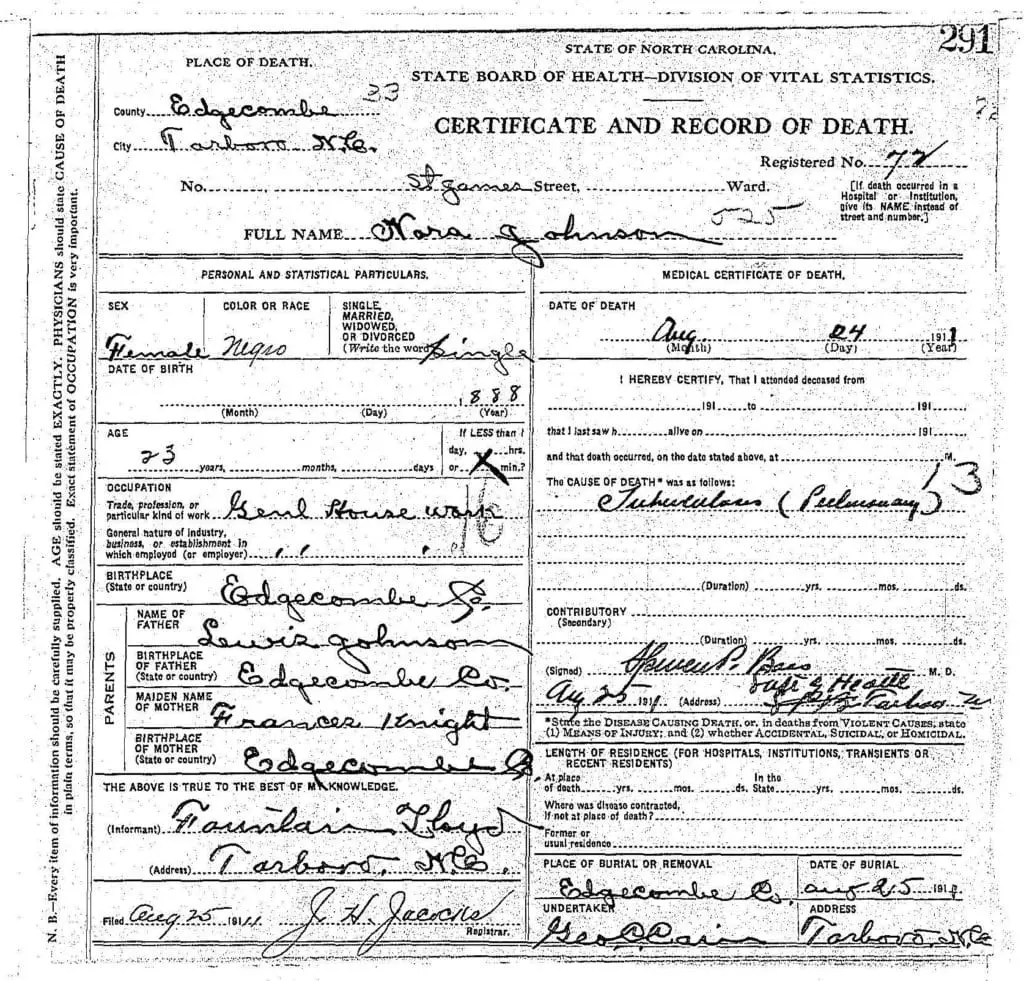 291
STATE OF NORTH CAROLINA.
STATE BOARD OF HEALTH—DIVISION OF VITAL STATISTICS.
CERTIFICATE AND RECORD OF DEATH.
PLACE OF DEATH.
County Edgecombe 33
City Tarboro N.C.
Registered No. 72
No. St James Street, Ward.
[If death occurred in a
Hospital or Institution,
give its NAME instead of
street and number.]
525
FULL NAME Nora Johnson
PERSONAL AND STATISTICAL PARTICULARS.
SEX
Female
COLOR OR RACE
Negro
SINGLE,
MARRIED,
WIDOWED,
OR DIVORCED
(Write the word) Single
DATE OF BIRTH
1888
(Month) (Day) (Year)
AGE
23 years, months, days
If LESS than 1
day, hrs.
or X min.?
OCCUPATION
Trade, profession, or
particular kind of work Genl House work
General nature of industry,
business, or establishment in
which employed (or employer) " "
BIRTHPLACE
(State or country) Edgecombe Co.
PARENTS
NAME OF
FATHER
Lewis Johnson
BIRTHPLACE
OF FATHER
(State or country) Edgecombe Co.
MAIDEN NAME
OF MOTHER
Frances Knight
BIRTHPLACE
OF MOTHER
(State or country) Edgecombe Co
THE ABOVE IS TRUE TO THE BEST OF MY KNOWLEDGE.
(Informant) Fountain Lloyd
(Address) Tarboro, N.C.
Filed Aug 25 1911 J. H. Jacocks
Registrar.
MEDICAL CERTIFICATE OF DEATH.
DATE OF DEATH
Aug 24 1911
(Month) (Day) (Year)
I HEREBY CERTIFY, That I attended deceased from
191 to 191
that I last saw h alive on 191
and that death occurred, on the date stated above, at M.
The CAUSE OF DEATH* was as follows:
Tuberculosis (Pulmonary)
13
(Duration) yrs. mos. ds.
CONTRIBUTORY
(Secondary)
(Duration) yrs. mos. ds.
(Signed) Bass M. D.
Supt of Health
Aug 25 1911 (Address) Tarboro
*State the DISEASE CAUSING DEATH, or, in deaths from VIOLENT CAUSES, state
(1) MEANS OF INJURY; and (2) whether ACCIDENTAL, SUICIDAL, or HOMICIDAL.
LENGTH OF RESIDENCE (FOR HOSPITALS, INSTITUTIONS, TRANSIENTS OR
RECENT RESIDENTS)
At place In the
of death yrs. mos. ds. State yrs. mos. ds.
Where was disease contracted,
If not at place of death?
Former or
usual residence
PLACE OF BURIAL OR REMOVAL
Edgecombe Co.
DATE OF BURIAL
Aug 25 1911
UNDERTAKER
Geo C. Cain
ADDRESS
Tarboro, N.C.
N. B.—Every item of information should be carefully supplied. AGE should be stated EXACTLY. PHYSICIANS should state CAUSE OF DEATH
in plain terms, so that it may be properly classified. Exact statement of OCCUPATION is very important.